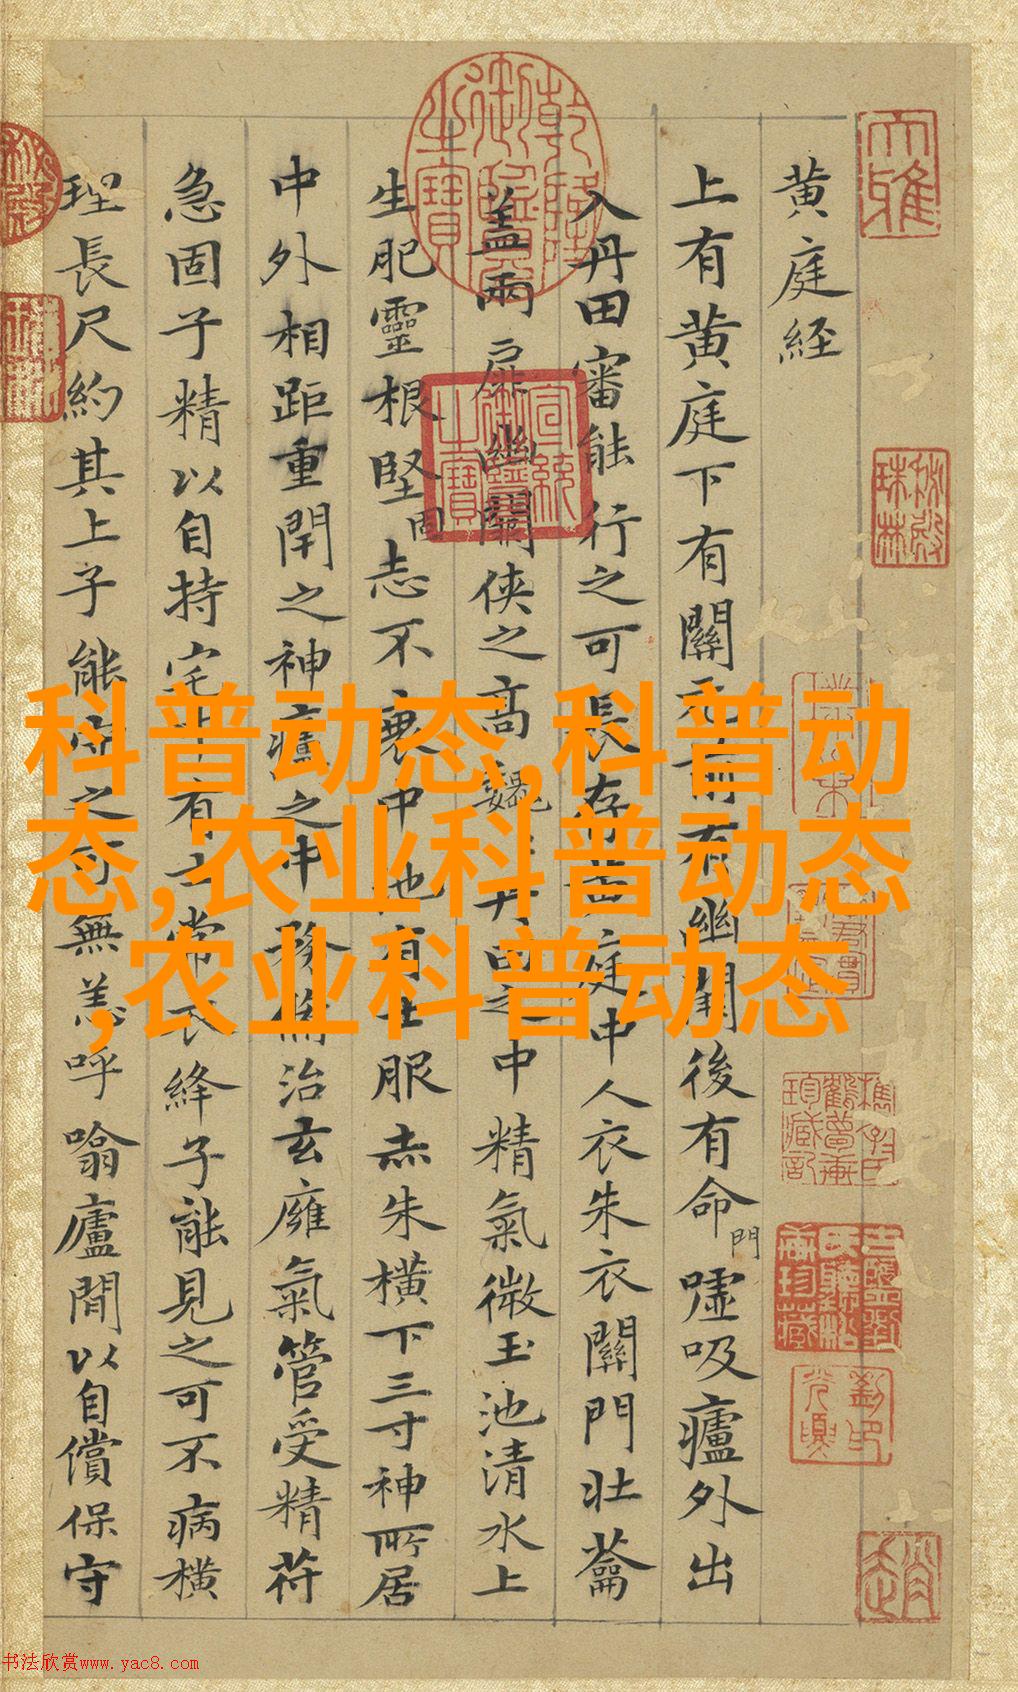 大雅
秘殿珠林
黄庭経
上有黄庭下有關元前有幽闕後有命門嘘吸廬外出
入丹田審能行之可長存黄庭中人衣朱衣關門壮蘥
蓋兩扉幽闕侠之高巍〻丹田之中精氣微玉池清水上
生肥靈根堅固志不衰中池有士服赤朱横下三寸神所居
中外相距重閇之神廬之中務脩治玄癕氣管受精苻
急固子精以自持宅中有士常衣絳子能見之可不病横
理長尺約其上子能守之可無恙呼噏廬間以自償保守
乾隆御覽之寶
宣統御覽之寶
科普动态,科普动
态,农业科普动态
,农业科普动态
书法欣赏www.yac8.com